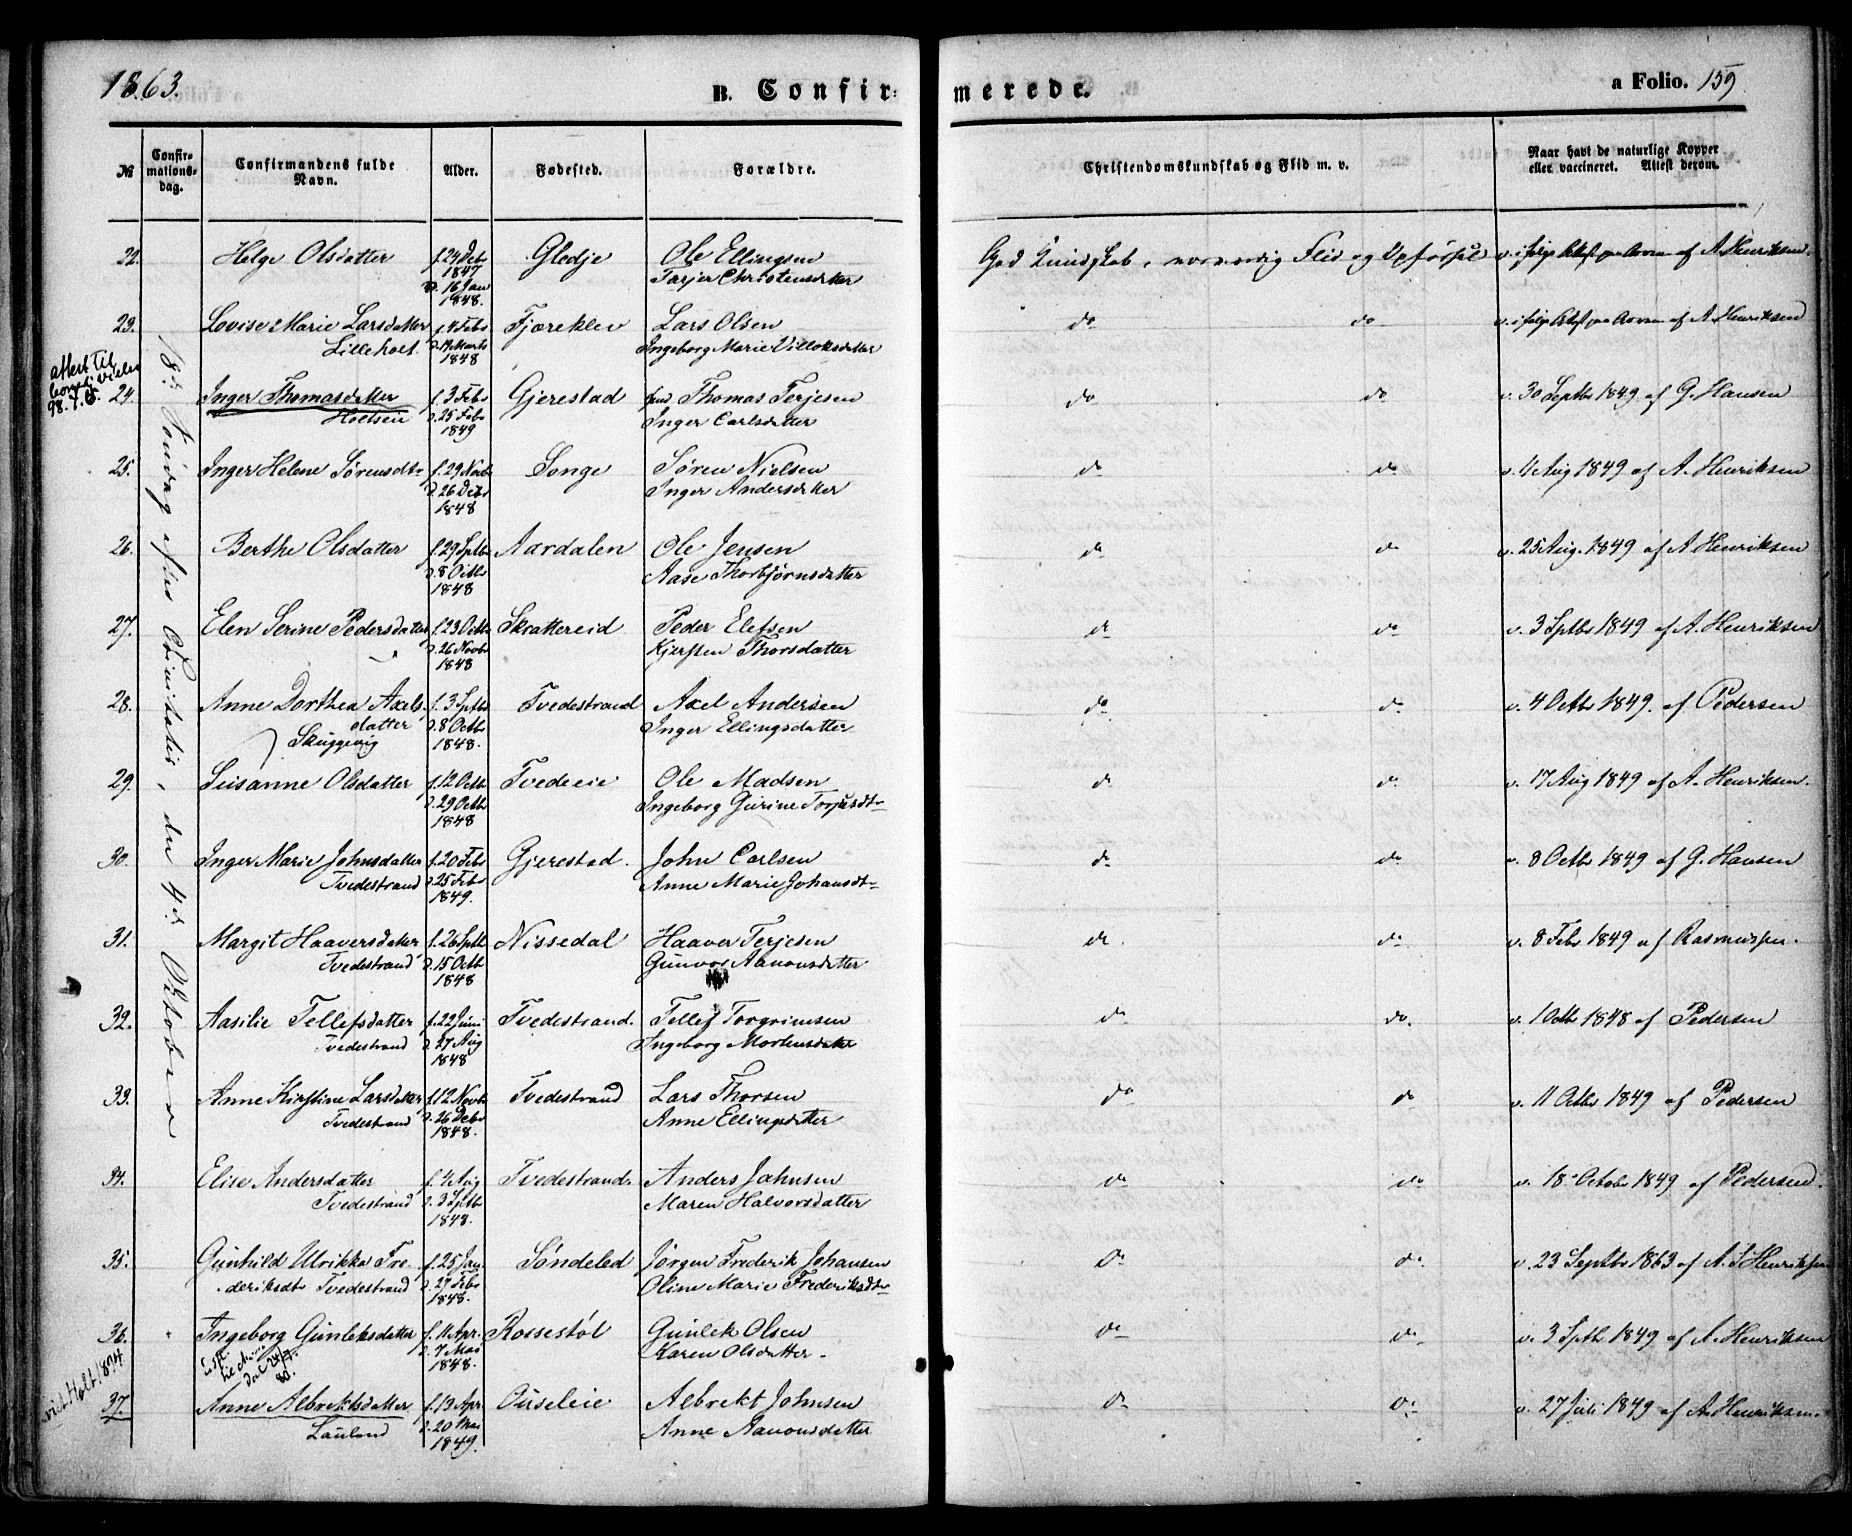 1863.
B. Confirmerede.
a Folio. 159
№
Confirmationsdag.
Confirmandens fulde Navn.
Alder.
Fødested.
Forældre.
Christendomskundskab og Flid m. v.
Naar havt de naturlige Kopper eller vaccineret. Attest derom.
18de Søndag efter Trinitatis, den 4de October
22. Helge Olsdatter f. 24 Debr 1847 d. 16 Jan 1848. Gledje Ole Ellingsen God Kundskab, Flid og Opførsel v. ifølge Attest af A. Henriksen.
Tarjer Christensdatter
23. Lovise Marie Larsdatter f. 4 Febr d. 17 Marts 1848 Fjæreklev Lars Olsen do do v. ifølge Attest af A. Henriksen
Lilleholt. Ingeborg Marie
attest til
98.
24. Inger Thomasdatter f. 3 Feb d. 25 Feb 1849 Gjerestad Thomas Terjesen do do v. 30 Septbr 1849 af G. Hansen
Inger Carlsdatter
25. Inger Helene Sørensdtr f. 29 Novb d. 26 Debr 1848 Songe Søren Nielsen do do v. 11 Aug 1849 af A. Henriksen
Inger Andersdatter
26. Berthe Olsdatter f. 29 Sptbr d. 8 Octbr 1848 Aardalen Ole Jensen do do v. 25 Aug. 1849 af A Henriksen
Aase Thorbjørnsdatter
27. Elen Serine Pedersdatter f. 23 Octb d. 26 Novbr 1848 Skrattereid Peder Elefsen do do v. 3 Sptbr 1849 af A. Henriksen
Kjersten Thorsdatter
28. Anne Dorthea Axelsdatter f. 3 Sptbr d. 8 Octb 1848. Tvedestrand Axel Andersen do do v. 4 Octbr 1849. af Pedersen
Skuggevig Inger Ellingsdatter
29. Susanne Olsdatter f. 12 Octb d. 29 Octb 1848 Tvedeeie Ole Madsen do do v. 17 Aug 1849 af A. Henriksen.
Ingeborg Gurine
30. Inger Marie Johnsdatter f. 20 Feb d. 25 Feb 1849. Gjerestad. John Carlsen do do v. 8 Octbr 1849 af G. Hansen
Tvedestrand Anne Marie Johansdtr
31. Margit Haaversdatter f. 26 Sptb d. 15 Octb 1848 Nissedal Haaver Terjesen do. do v. 8 Febr 1849 af Rasmussen.
Tvedestrand Gunvor Aanonsdatter
32. Aasilie Tellefsdatter f. 22 Juni d. 27 Aug 1848 Tvedestrand. Tellef Torgrimsen do do. v. 1 Octbr 1848 af Pedersen
Tvedestrand Ingeborg Mortensdatter
33. Anne Kirstine Larsdatter f. 12 Novb d. 26 Debr 1848. Tvedestrand Lars Thorsen do do v. 11 Octbr 1849 af Pedersen
Tvedestrand Anne Ellingsdatter
34. Elise Andersdatter f. 4 Aug d. 3 Sptb 1848. Tvedestrand. Anders Jahnsen do do v. 18 Octobr 1849 af Pedersen.
Tvedestrand Maren Halvorsdatter
35. Gunhild Ulrikke Frederiksdtr f. 25 Jan d. 27 Febr 1848. Søndeled Jørgen Frederik Johansen do do. v. 23 Septbr 1863 af A. S. Henriksen
Tvedestrand Oline Marie Frederiksdtr
36. Ingeborg Gunleksdatter f. 11 Apr. d. 7 Mai 1848. Rossestøl Gunlek Olsen do do v. 3 Sptb 1849 af A. Henriksen
Karen Olsdatter.
Holt 1894
37. Anne Albrektsdatter f. 13 Apr d. 20 Mai 1849. Ouseleie Albrekt Johnsen do do v. 27 Juli 1849 af A. Henriksen.
Lauland Anne Aanonsdatter